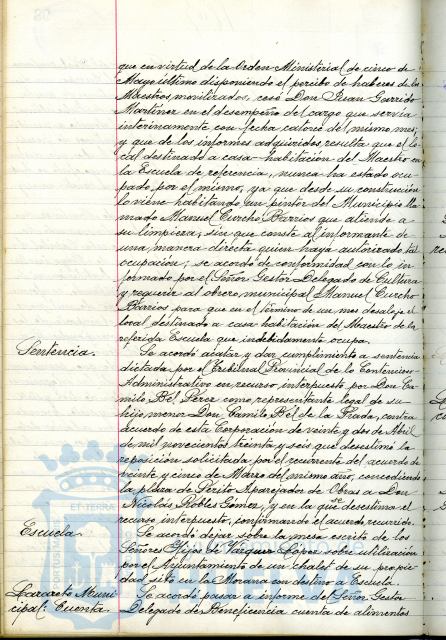 que en virtud de la Orden Ministerial de cinco de
Mayo último disponiendo el percibo de haberes de los
Maestros movilizados, cesó Don Juan Garrido
Martinez en el desempeño del cargo que servia
interinamente con fecha catorce del mismo mes;
y que de los informes adquiridos, resulta que el lo-
cal destinado a casa-habitación del Maestro en
la Escuela de referencia, nunca ha estado ocu-
pado, por el mismo, ya que desde su construcción
lo viene habitando un pintor del Municipio lla-
mado Manuel Curcho Barrios que atiende a
su limpieza; sin que conste al informante de
una manera directa quien haya autorizado tal
ocupación; se acordó de conformidad con lo in-
formado por el Señor Gestor Delegado de Cultura
y requerir al obrero municipal Manuel Curcho
Barrios para que en el término de un mes desaloje el
local destinado a casa habitación del Maestro de la
referida Escuela que indebidamente ocupa.
Sentencia. Se acordó acatar y dar cumplimiento a sentencia
dictada por el Tribunal Provincial de lo Contencioso-
Administrativo en recurso interpuesto por Don Ca-
milo Bel Perez como representante legal de su
hijo menor Don Camilo Bel de la Prada, contra
acuerdo de esta Corporación de veinte y dos de Abril
de mil novecientos treinta y seis que desestimó la
reposición solicitada por el recurrente del acuerdo de
veinte y cinco de Marzo del mismo año, concediendo
la plaza de Perito Aparejador de Obras a Don
Nicolas Robles Gomez, y en la que se desestima el
recurso interpuesto, confirmando el acuerdo recurrido.
Escuela. Se acordó dejar sobre la mesa escrito de los
Señores Hijos de Vazquez Lopez sobre utilización
por el Ayuntamiento de un chalet de su propie-
dad sito en la Morana con destino a Escuela.
Lazareto Muni- Se acordó pasar a informe del Señor Gestor
cipal: Cuenta. Delegado de Beneficencia cuenta de alimentos